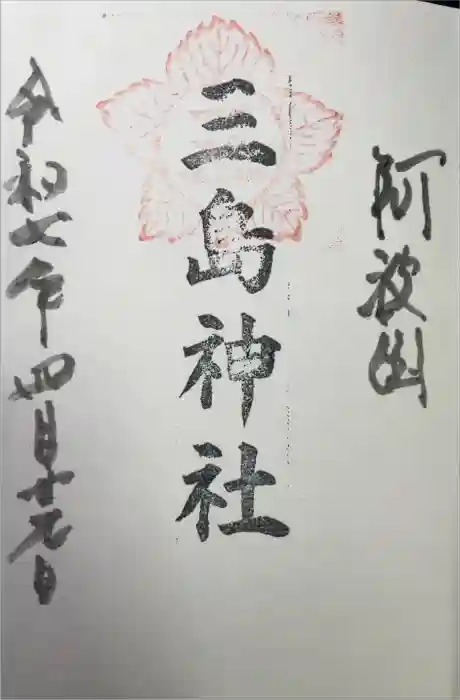 阿波
三島神社
令和七年四月十九日